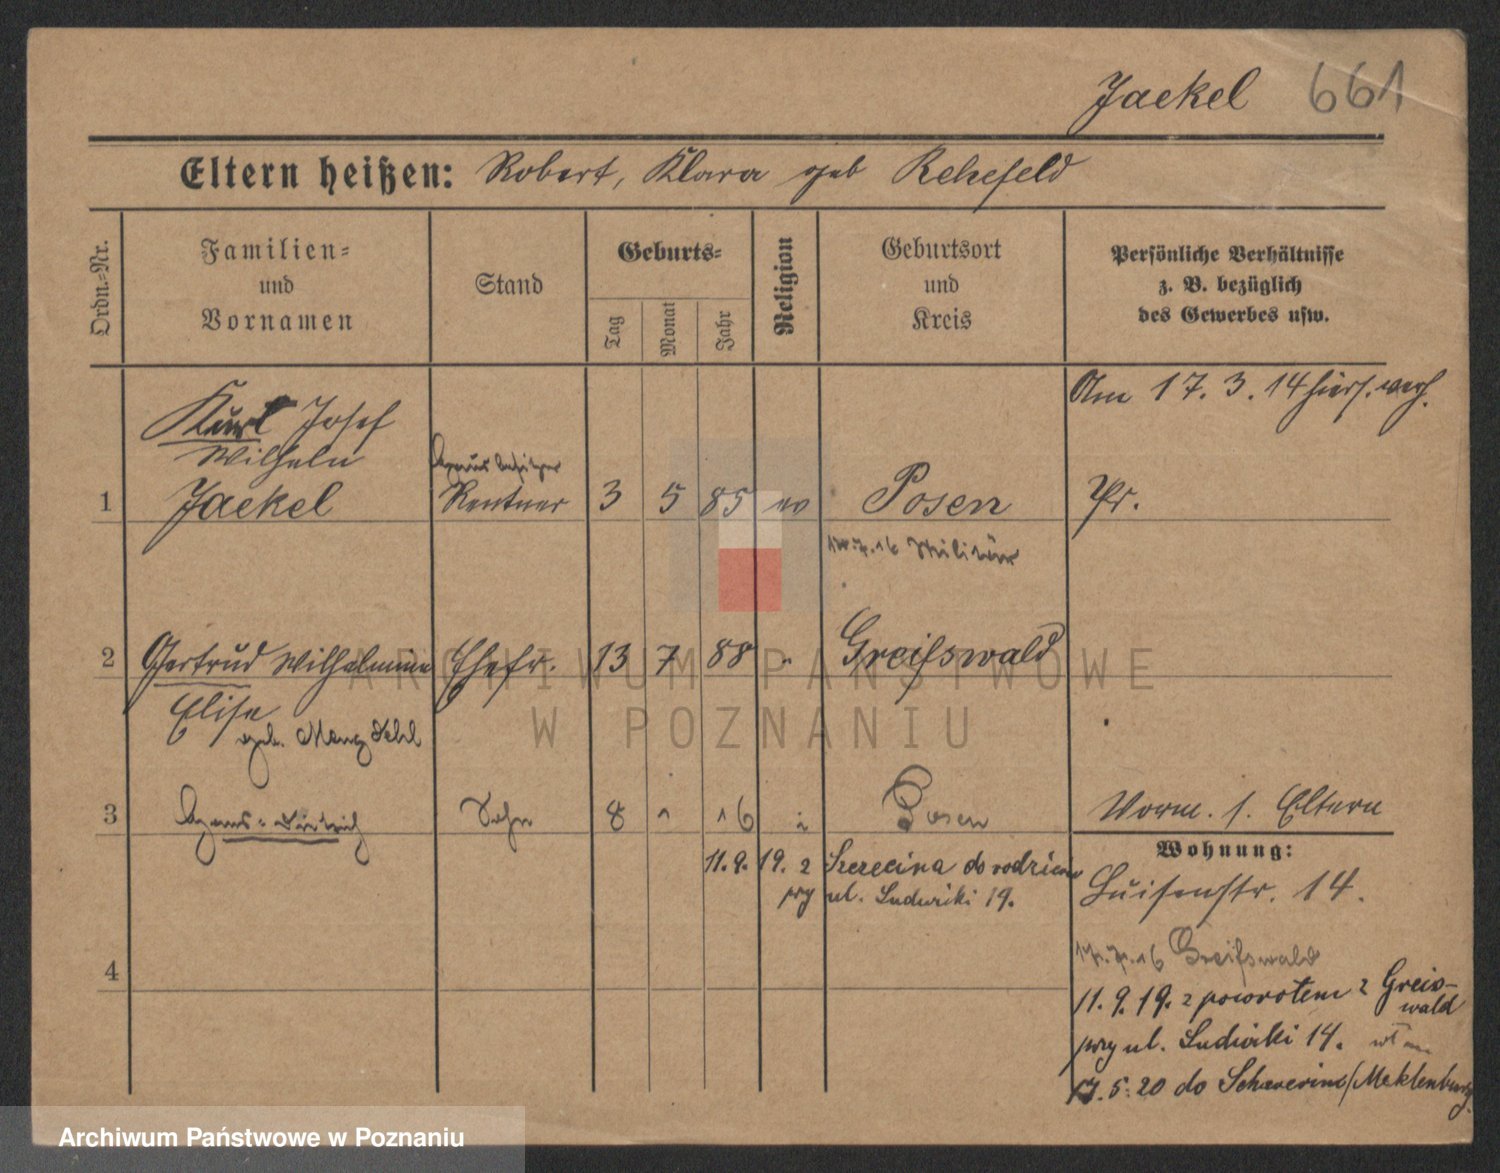 Jaekel 661
Eltern heißen: Robert, Klara geb Rehefeld
Ordn.-Nr.
Familien-
und
Vornamen
Stand
Geburts-
Tag
Monat
Jahr
Religion
Geburtsort
und
Kreis
Persönliche Verhältnisse
z. B. bezüglich
des Gewerbes usw.
Am 17. 3. 14 hiers. verh.
Kurt Josef
Wilhelm
Hausbesitzer
1 Jaekel Rentner 3 5 85 ev Posen Pr.
17.7.16 Militär
2 Gertrud Wilhelmine Ehefr. 13 7 88 " Greifswald
Elise
geb.
3 Hans-Dietrich Sohn 8 1 16 Posen Worm. s. Eltern
Wohnung:
11.9.19. z Szczecina do rodziców
przy ul. Ludwiki 19.
Luisenstr. 14.
4
17.7.16 Greifswald
11.9.19. z powrotem z Greis-
wald
przy ul. Ludwiki 14.
17.5.20 do Schwerinu/Mecklenburg
ARCHIWUM PAŃSTWOWE
W POZNANIU
Archiwum Państwowe w Poznaniu